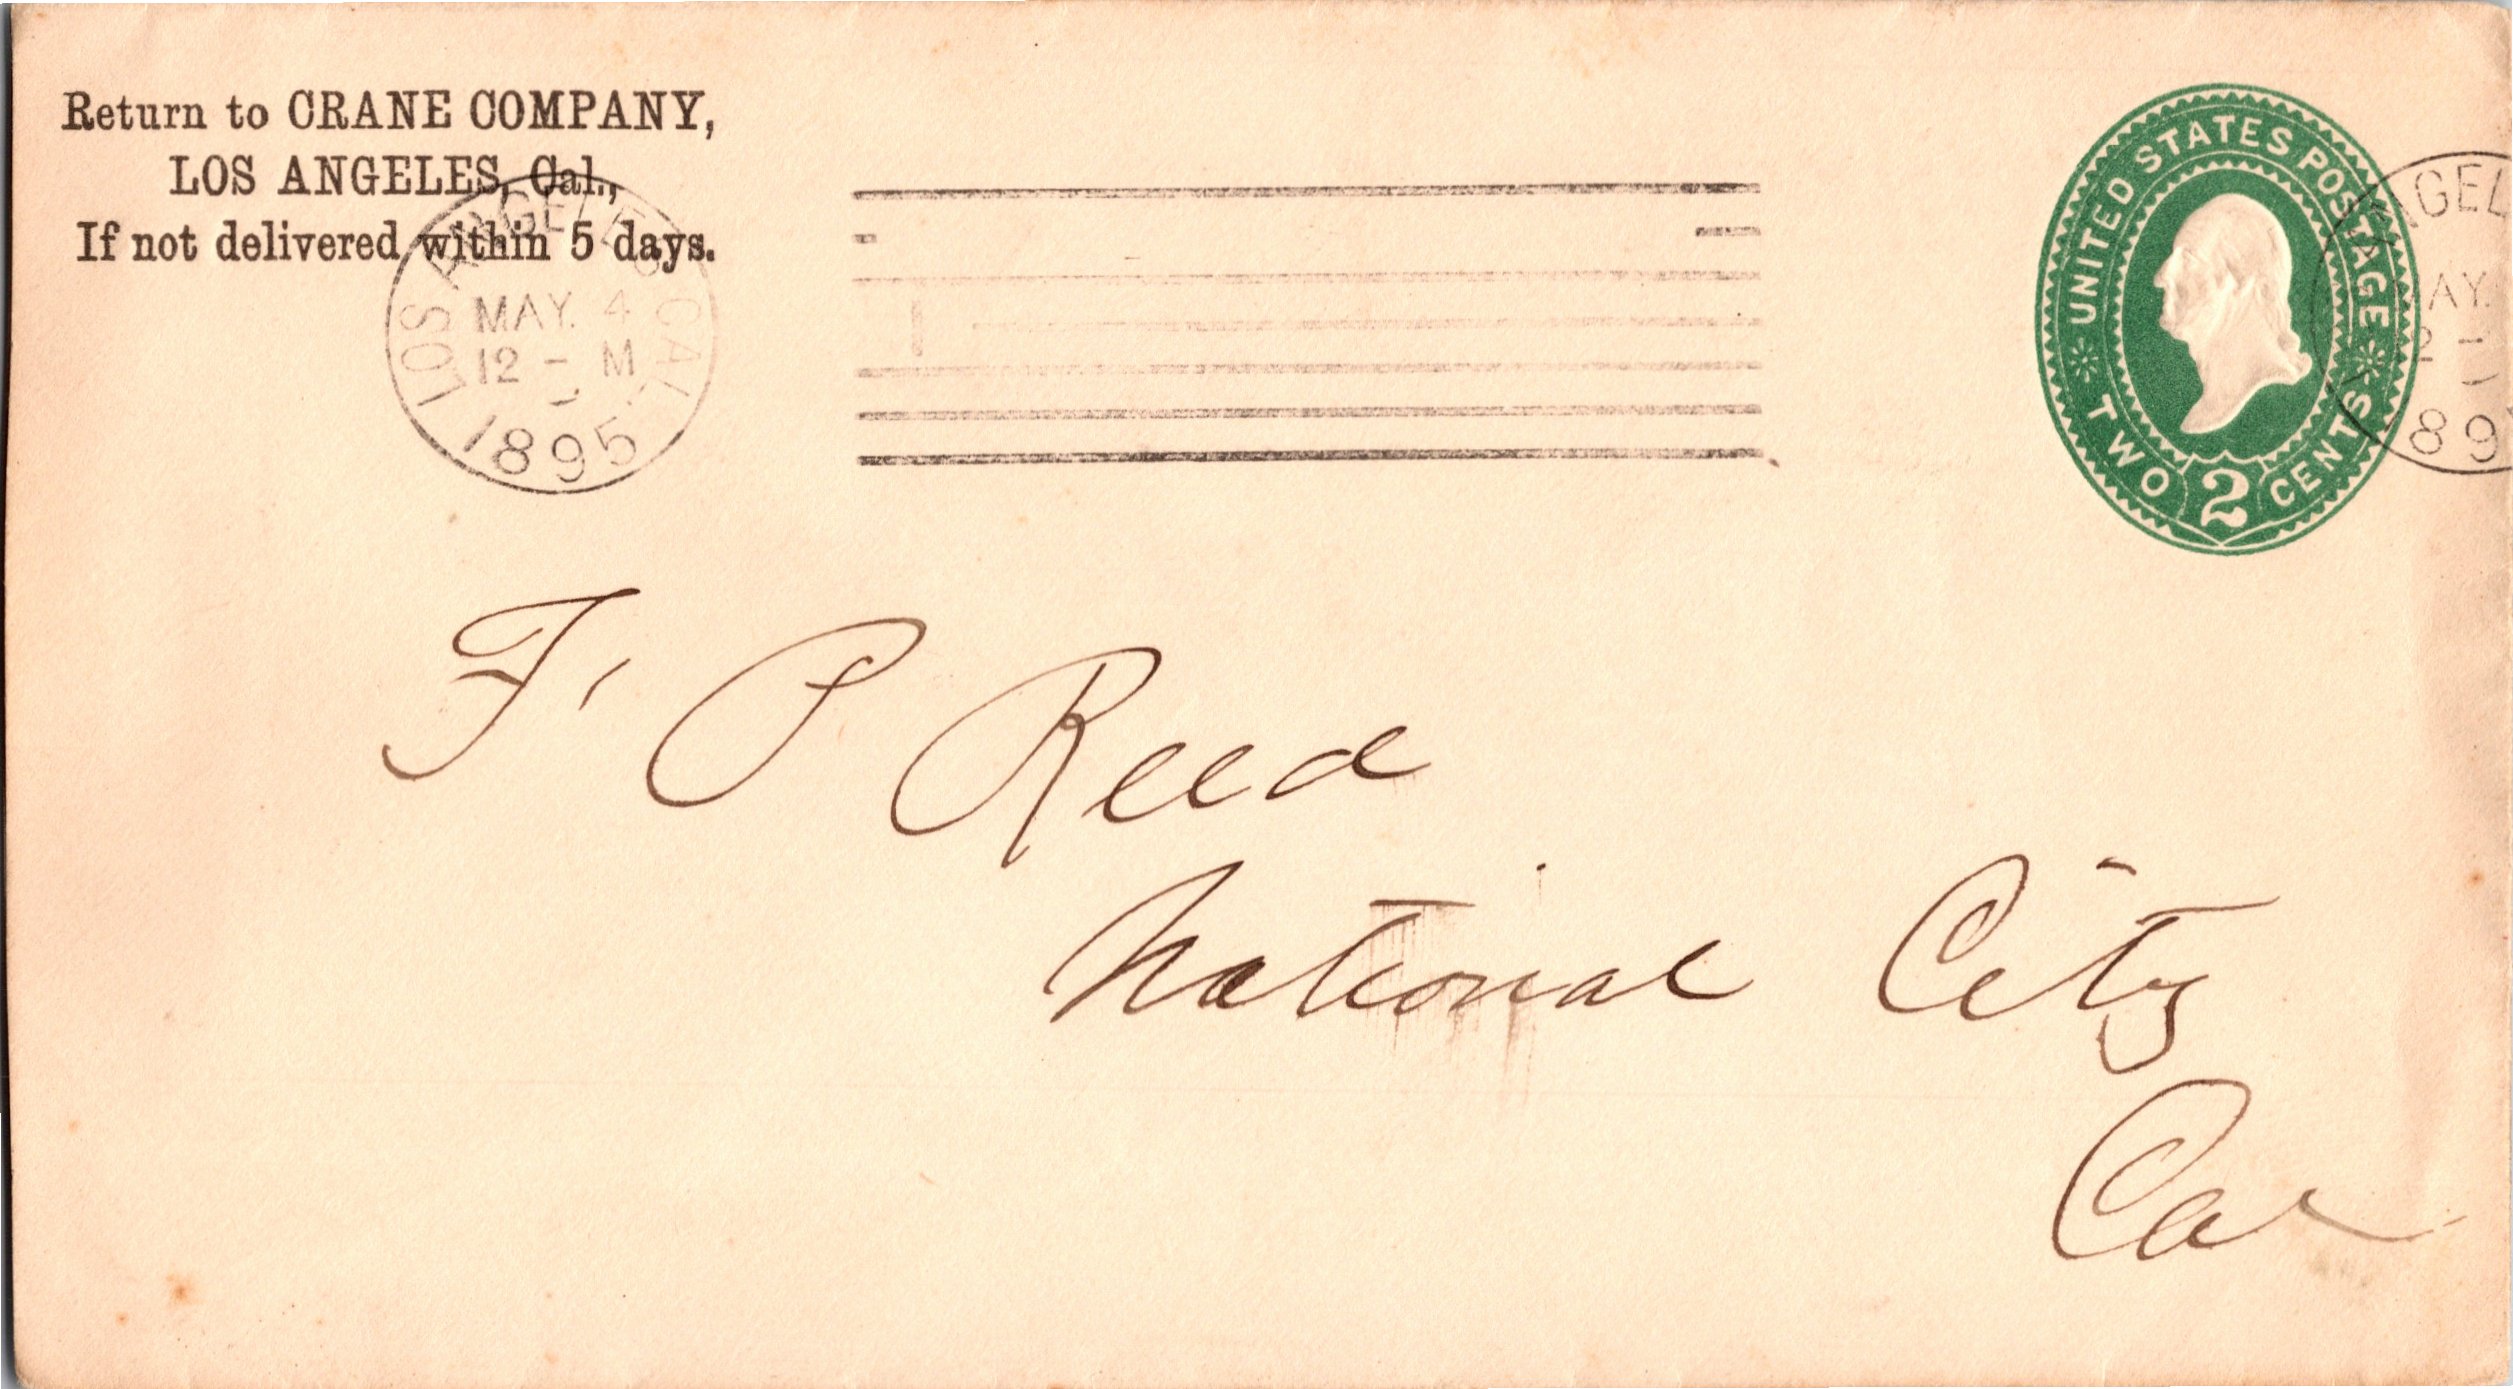 Return to CRANE COMPANY,
LOS ANGELES, Cal.,
If not delivered within 5 days.
LOS ANGELES CAL.
MAY. 4
12 - M
1895
UNITED STATES POSTAGE
TWO 2 CENTS
NGEL
AY.
2 -
89
F. P Reed
National City
Cal